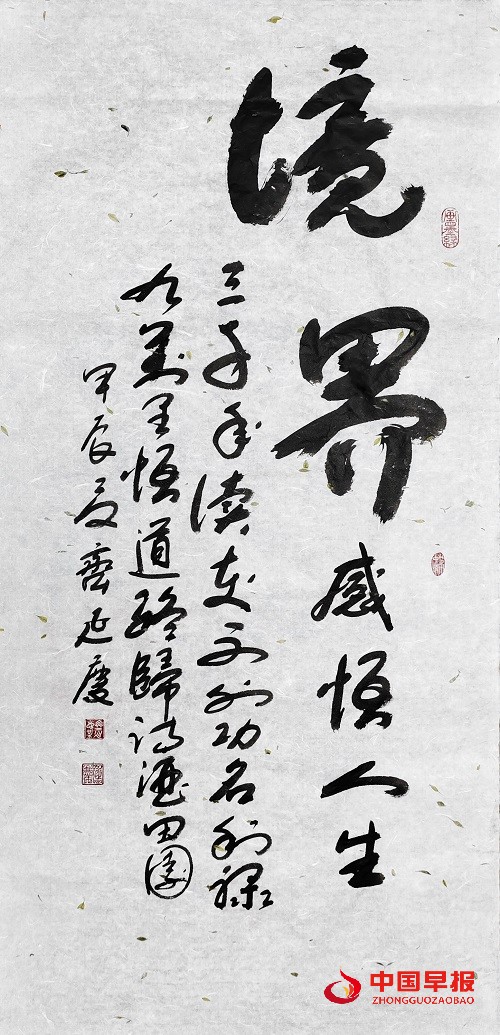 境界
感悟人生
三千年讀史不外功名利祿
九萬里悟道終歸詩酒田園
甲辰夏齊延慶
中国早报
ZHONGGUOZAOBAO